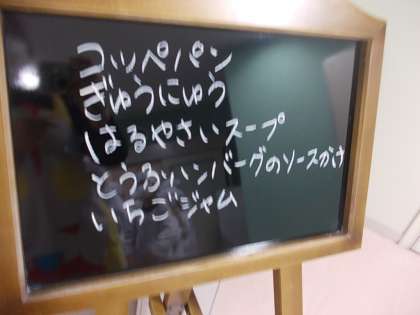 コッペパン
ぎゅうにゅう
はるやさいスープ
とうふハンバーグのソースがけ
いちごジャム